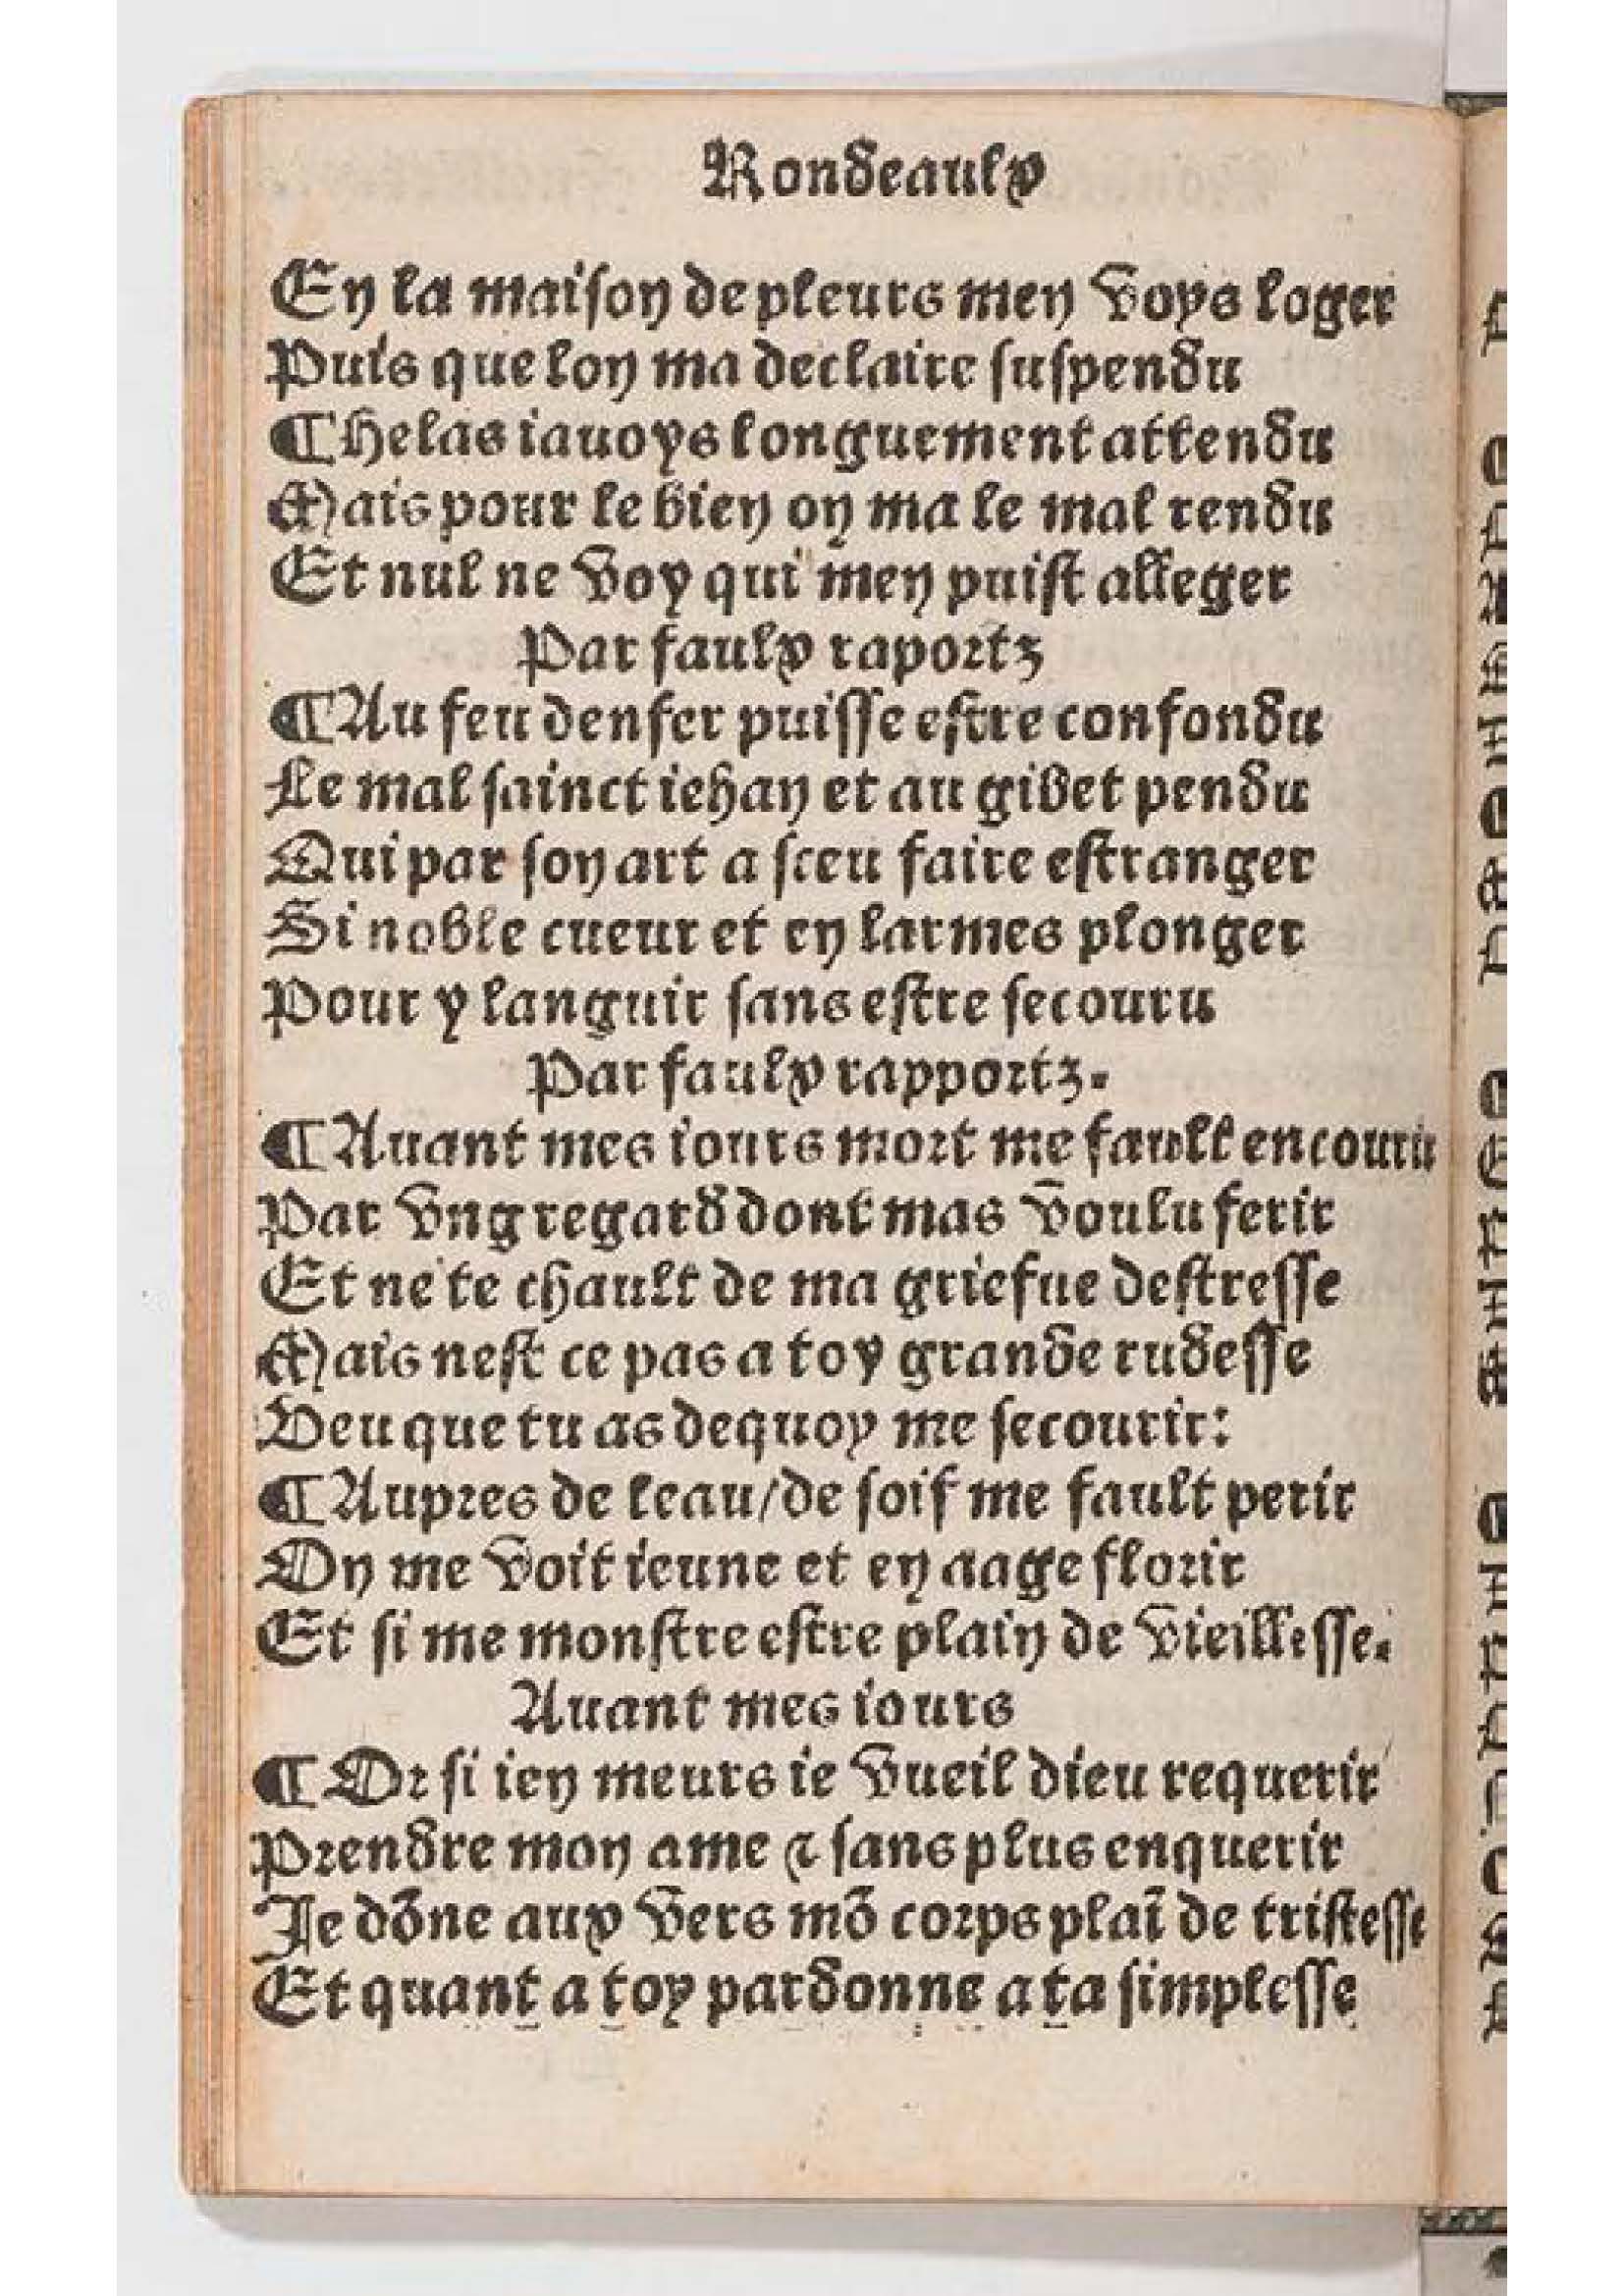 Rondeaulx
En la maison de pleurs men voys loger
Puis que lon ma declaire suspendu
¶ Helas iauoys longuement attendu
Mais pour le bien on ma le mal rendu
Et nul ne voy qui men puist alleger
Par faulx raportz
¶ Au feu denfer puisse estre confondu
Le mal sainct iehan et au gibet pendu
Qui par son art a sceu faire estranger
Si noble cueur et en larmes plonger
Pour y languir sans estre secouru
Par faulx rapportz.
¶ Auant mes iours mort me fault encourir
Par vng regard dont mas voulu ferir
Et ne te chault de ma griefue destresse
Mais nest ce pas a toy grande rudesse
Veu que tu as dequoy me secourir:
¶ Aupres de leau/de soif me fault perir
On me voit ieune et en aage florir
Et si me monstre estre plain de vieillesse.
Auant mes iours
¶ Or si ien meurs ie vueil dieu requerir
Prendre mon ame ⁊ sans plus enquerir
Je dõne aux vers mõ corps plaĩ de tristesse
Et quant a toy pardonne a ta simplesse